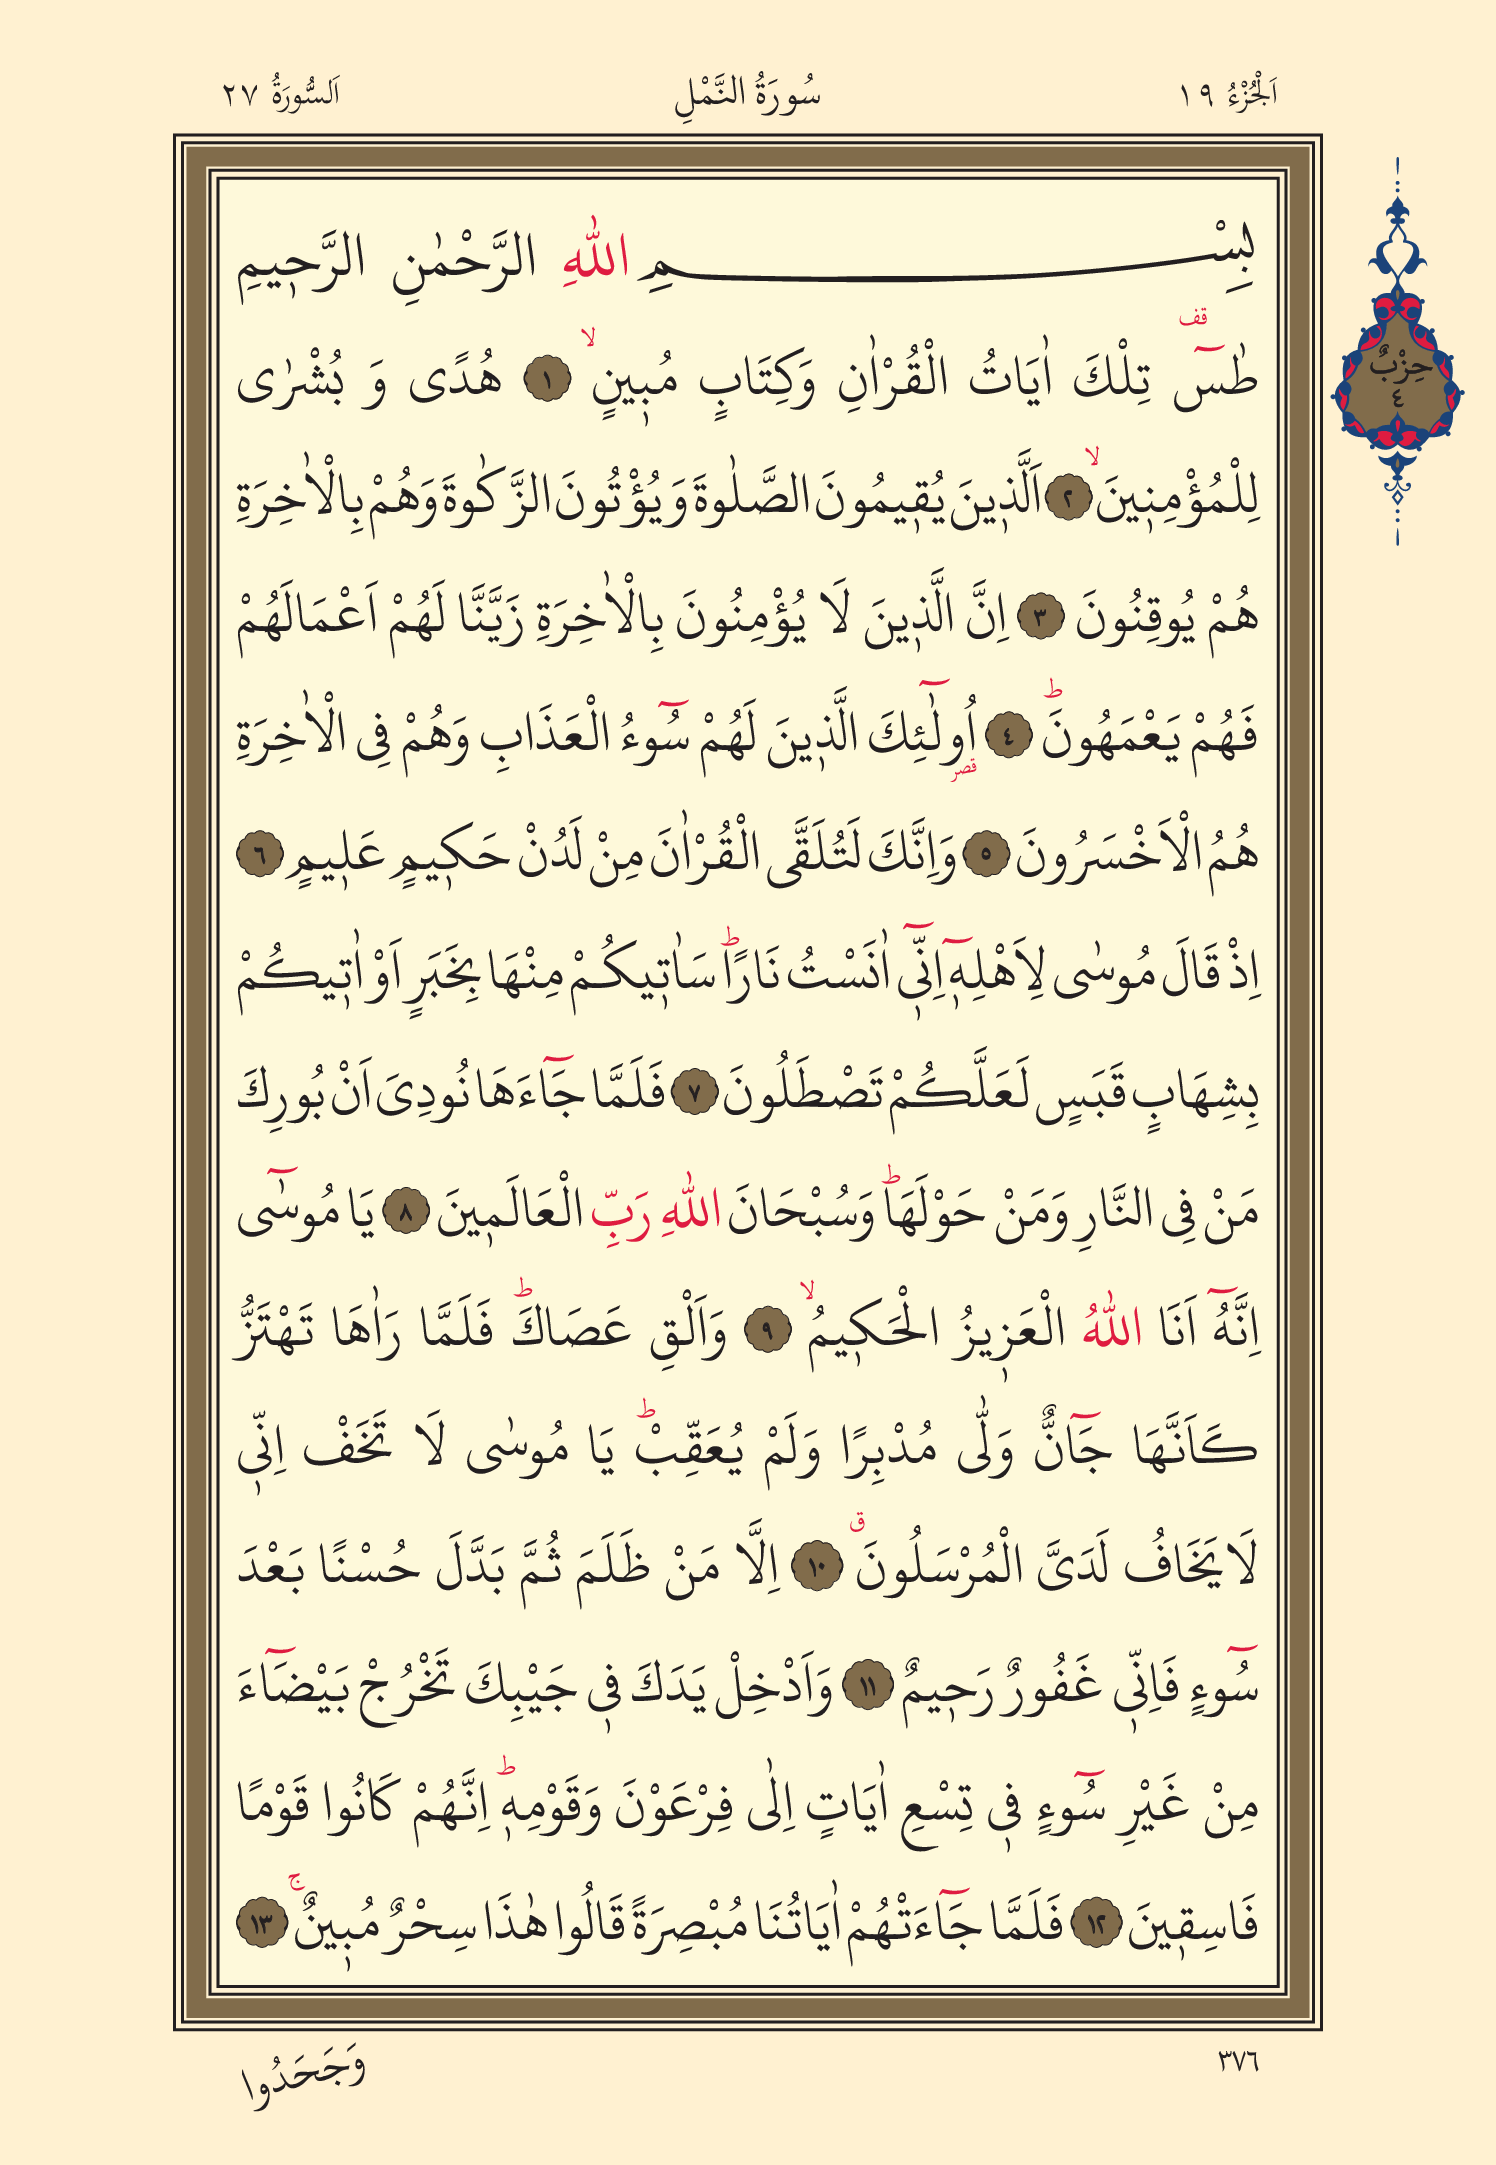 اَلْجُزْءُ ١٩
سُورَةُ النَّمْلِ
اَلسُّورَةُ ٢٧
بِسْمِ اللّٰهِ الرَّحْمٰنِ الرَّحٖيمِ
طٰسٓ قف تِلْكَ اٰيَاتُ الْقُرْاٰنِ وَكِتَابٍ مُبٖينٍۙ ١ هُدًى وَ بُشْرٰى
لِلْمُؤْمِنٖينَۙ ٢ اَلَّذٖينَ يُقٖيمُونَ الصَّلٰوةَ وَ يُؤْتُونَ الزَّكٰوةَ وَهُمْ بِالْاٰخِرَةِ
هُمْ يُوقِنُونَ ٣ اِنَّ الَّذٖينَ لَا يُؤْمِنُونَ بِالْاٰخِرَةِ زَيَّنَّا لَهُمْ اَعْمَالَهُمْ
فَهُمْ يَعْمَهُونَؕ ٤ اُولٰٓئِكَ قصر الَّذٖينَ لَهُمْ سُٓوءُ الْعَذَابِ وَهُمْ فِى الْاٰخِرَةِ
هُمُ الْاَخْسَرُونَ ٥ وَاِنَّكَ لَتُلَقَّى الْقُرْاٰنَ مِنْ لَدُنْ حَكٖيمٍ عَلٖيمٍ ٦
اِذْ قَالَ مُوسٰى لِاَهْلِهٖٓ اِنّٖٓى اٰنَسْتُ نَارًاؕ سَاٰتٖيكُمْ مِنْهَا بِخَبَرٍ اَوْ اٰتٖيكُمْ
بِشِهَابٍ قَبَسٍ لَعَلَّكُمْ تَصْطَلُونَ ٧ فَلَمَّا جَٓاءَهَا نُودِىَ اَنْ بُورِكَ
مَنْ فِى النَّارِ وَمَنْ حَوْلَهَاؕ وَسُبْحَانَ اللّٰهِ رَبِّ الْعَالَمٖينَ ٨ يَا مُوسٰٓى
اِنَّهُٓ اَنَا اللّٰهُ الْعَزٖيزُ الْحَكٖيمُۙ ٩ وَاَلْقِ عَصَاكَؕ فَلَمَّا رَاٰهَا تَهْتَزُّ
كَاَنَّهَا جَٓانٌّ وَلّٰى مُدْبِرًا وَلَمْ يُعَقِّبْؕ يَا مُوسٰى لَا تَخَفْ اِنّٖى
لَا يَخَافُ لَدَىَّ الْمُرْسَلُونَ ق ١٠ اِلَّا مَنْ ظَلَمَ ثُمَّ بَدَّلَ حُسْنًا بَعْدَ
سُٓوءٍ فَاِنّٖى غَفُورٌ رَحٖيمٌ ١١ وَاَدْخِلْ يَدَكَ فٖى جَيْبِكَ تَخْرُجْ بَيْضَٓاءَ
مِنْ غَيْرِ سُٓوءٍ فٖى تِسْعِ اٰيَاتٍ اِلٰى فِرْعَوْنَ وَقَوْمِهٖؕ اِنَّهُمْ كَانُوا قَوْمًا
فَاسِقٖينَ ١٢ فَلَمَّا جَٓاءَتْهُمْ اٰيَاتُنَا مُبْصِرَةً قَالُوا هٰذَا سِحْرٌ مُبٖينٌۚ ١٣
حِزْبٌ
٤
٣٧٦
وَجَحَدُوا